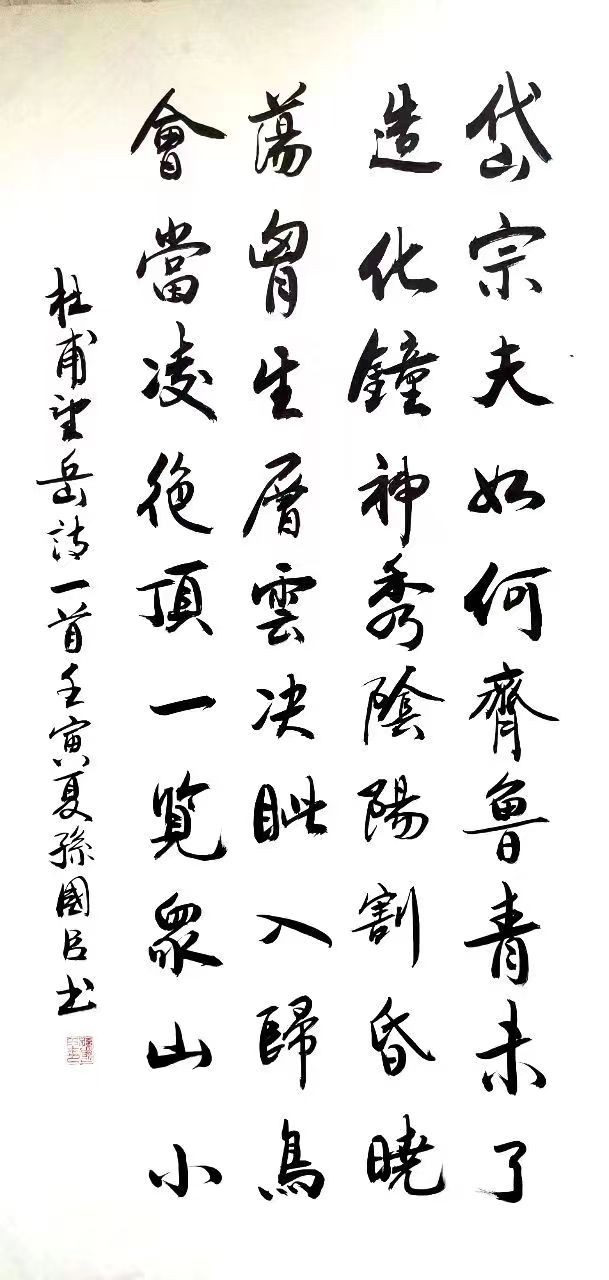 岱宗夫如何齊魯青未了
造化鐘神秀陰陽割昏曉
蕩胷生層雲决眦入歸鳥
會當凌絶頂一覽眾山小
杜甫望岳詩一首壬寅夏孫國臣书